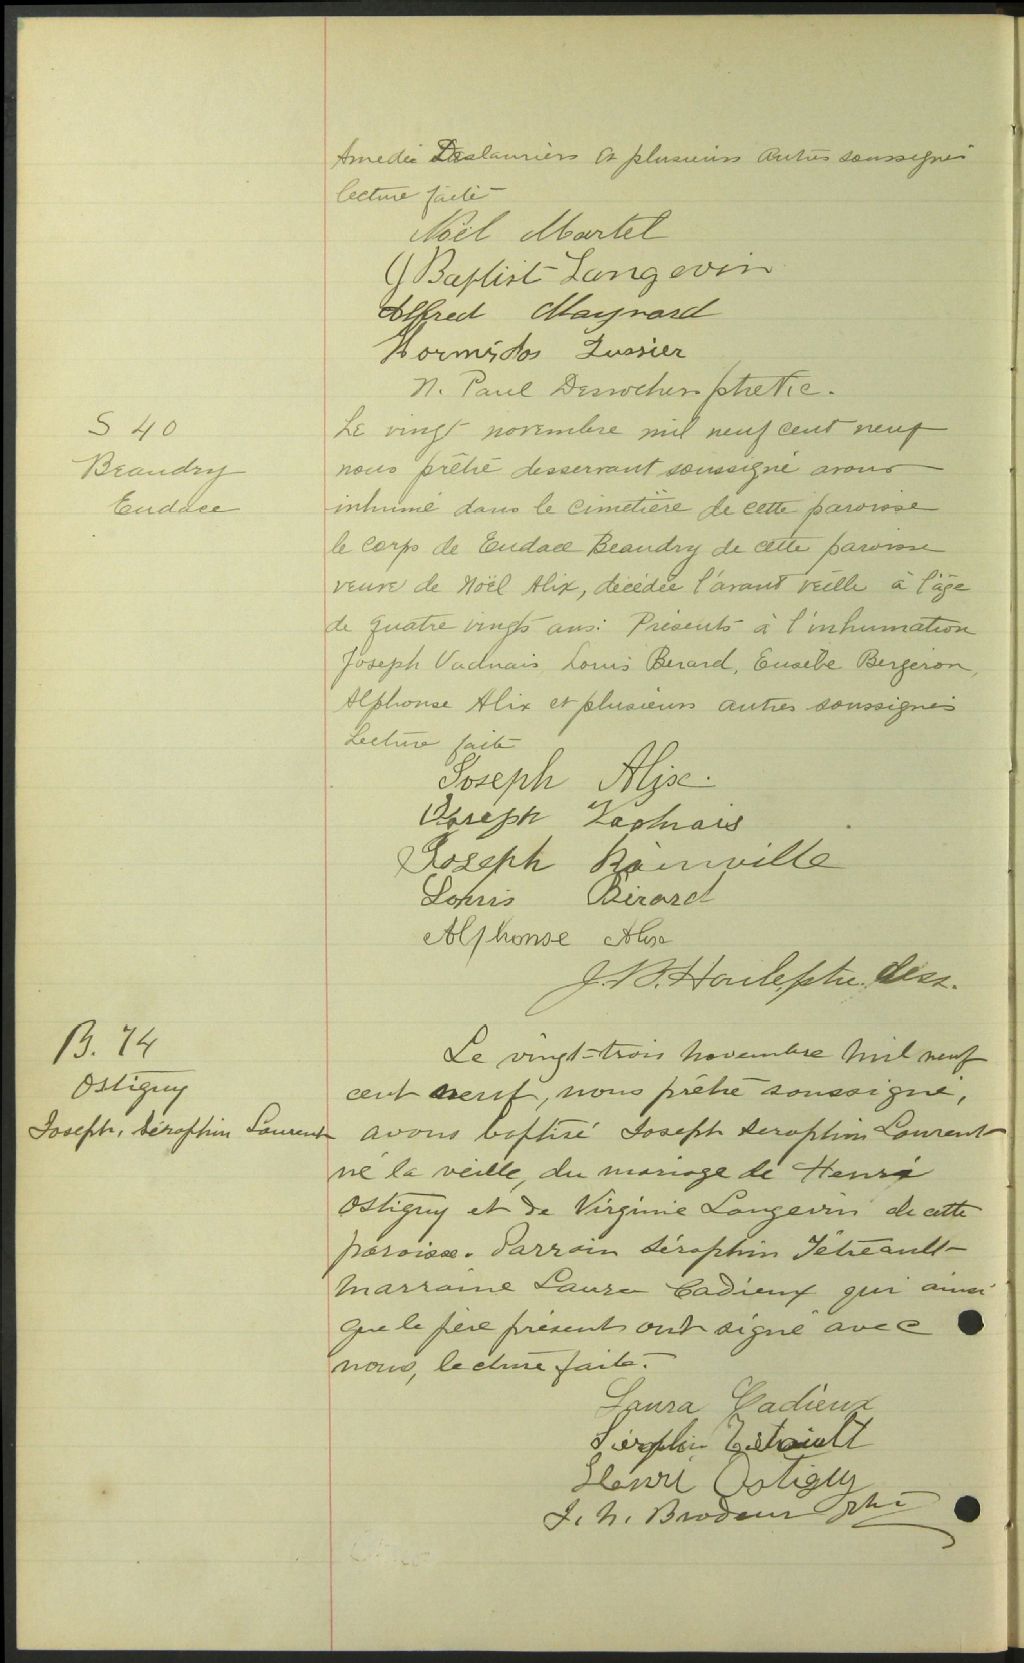 Amedée Deslauriers et plusieurs autres soussignés
lecture faite
Noël Martel
J Baptist Langevin
Alfred Maynard
Hormisdas Lussier
N. Paul Desrochers ptre Vic.
S 40
Beaudry
Eudace
Le vingt novembre mil neuf cent neuf
nous prêtre desservant soussigné avons
inhumé dans le cimetière de cette paroisse
le corps de Eudace Beaudry de cette paroisse
veuve de Noël Alix, décédée l'avant veille à l'âge
de quatre vingts ans: Présents à l'inhumation
Joseph Vadnais, Louis Berard, Eusèbe Bergeron,
Alphonse Alix et plusieurs autres soussignés
Lecture faite
Joseph Alix.
Joseph Vadnais
Joseph Rainville
Louis Bérard
Alphonse Alix
J. B. Houle, ptre. dess.
B. 74
Ostiguy
Joseph, Séraphin Laurent
Le vingt-trois novembre mil neuf
cent neuf, nous prêtre soussigné,
avons baptisé Joseph Seraphin Laurent
né la veille, du mariage de Henri
Ostiguy et de Virginie Langevin de cette
paroisse. Parrain Séraphin Tétreault
marraine Laura Cadieux qui ainsi
que le père présent ont signé avec
nous, lecture faite.
Laura Cadieux
Séraphin Tétrault
Henri Ostiguy
J. N. Brodeur ptre